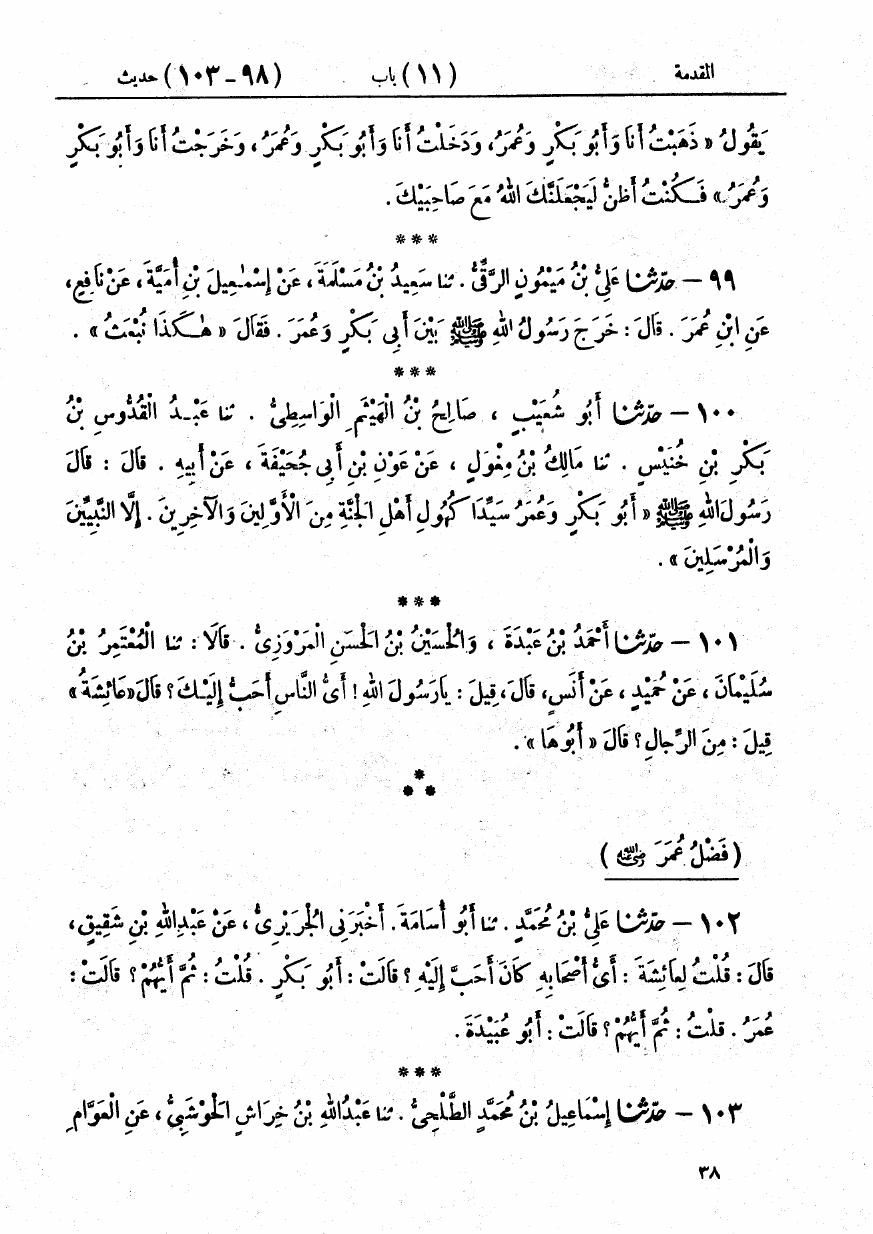 المقدمة (١١) باب (٩٨ـ١٠٣) حديث
يَقُولُ «ذَهَبْتُ أَنَا وَأَبُو بَكْرٍ وَعُمَرُ، وَدَخَلْتُ أَنَا وَأَبُو بَكْرٍ وَعُمَرُ، وَخَرَجْتُ أَنَا وَأَبُو بَكْرٍ
وَعُمَرُ» فَكُنْتُ أَظُنُّ لَيَجْعَلَنَّكَ اللهُ مَعَ صَاحِبَيْكَ.
***
٩٩ – حدّثنا عَلِيُّ بْنُ مَيْمُونٍ الرَّقِّىُّ. ثنا سَعِيدُ بْنُ مَسْلَمَةَ، عَنْ إِسْمٰعِيلَ بْنِ أُمَيَّةَ، عَنْ نَافِعٍ،
عَنِ ابْنِ عُمَرَ. قَالَ: خَرَجَ رَسُولُ اللهِ ﷺ بَيْنَ أَبِى بَكْرٍ وَعُمَرَ. فَقَالَ «هٰكَذَا نُبْعَثُ».
***
١٠٠ – حدّثنا أَبُو شُعَيْبٍ، صَالِحُ بْنُ الْهَيْثَمِ الْوَاسِطِىُّ. ثنا عَبْدُ الْقُدُّوسِ بْنُ
بَكْرِ بْنِ خُنَيْسٍ. ثنا مَالِكُ بْنُ مِغْوَلٍ، عَنْ عَوْنِ بْنِ أَبِى جُحَيْفَةَ، عَنْ أَبِيهِ. قَالَ: قَالَ
رَسُولُ اللهِ ﷺ «أَبُو بَكْرٍ وَعُمَرُ سَيِّدَا كُهُولِ أَهْلِ الْجَنَّةِ مِنَ الْأَوَّلِينَ وَالْآخِرِينَ. إِلَّا النَّبِيِّينَ
وَالْمُرْسَلِينَ».
***
١٠١ – حدّثنا أَحْمَدُ بْنُ عَبْدَةَ، وَالْحُسَيْنُ بْنُ الْحَسَنِ الْمَرْوَزِىُّ. قَالَا: ثنا الْمُعْتَمِرُ بْنُ
سُلَيْمَانَ، عَنْ حُمَيْدٍ، عَنْ أَنَسٍ، قَالَ، قِيلَ: يَارَسُولَ اللهِ! أَىُّ النَّاسِ أَحَبُّ إِلَيْكَ؟ قَالَ «عَائِشَةُ»
قِيلَ: مِنَ الرِّجَالِ؟ قَالَ «أَبُوهَا».
*
* *
(فَضْلُ عُمَرَ رضي الله عنه)
١٠٢ – حدّثنا عَلِىُّ بْنُ مُحَمَّدٍ. ثنا أَبُو أُسَامَةَ. أَخْبَرَنِى الْجُرَيْرِىُّ، عَنْ عَبْدِاللهِ بْنِ شَقِيقٍ،
قَالَ: قُلْتُ لِعَائِشَةَ: أَىُّ أَصْحَابِهِ كَانَ أَحَبَّ إِلَيْهِ؟ قَالَتْ: أَبُو بَكْرٍ. قُلْتُ: ثُمَّ أَيُّهُمْ؟ قَالَتْ:
عُمَرُ. قُلْتُ: ثُمَّ أَيُّهُمْ؟ قَالَتْ: أَبُو عُبَيْدَةَ.
***
١٠٣ – حدّثنا إِسْمَاعِيلُ بْنُ مُحَمَّدٍ الطَّلْحِىُّ. ثنا عَبْدُاللهِ بْنُ خِرَاشٍ الْحَوْشَبِىُّ، عَنِ الْعَوَّامِ
٣٨